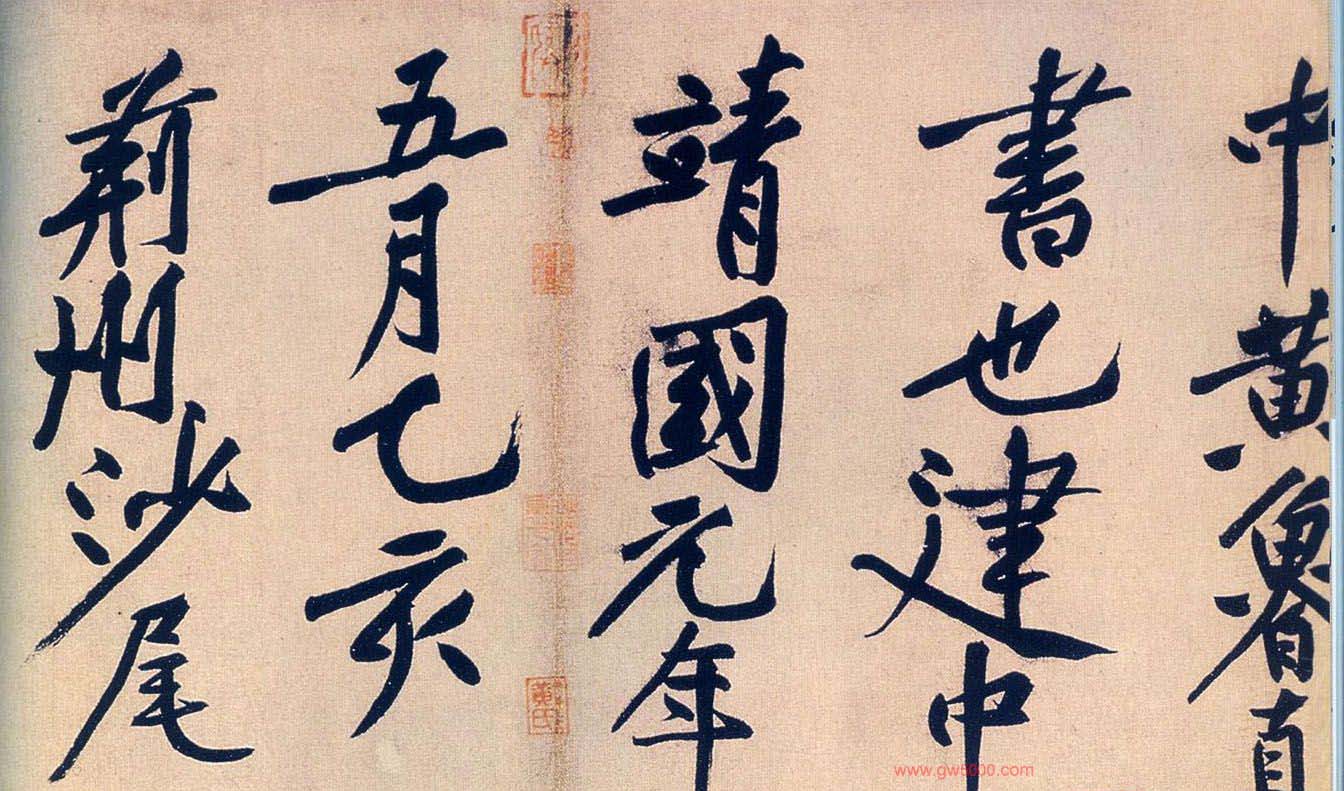 中黃魯直
書也建中
靖國元年
五月乙亥
荊州沙尾
www.gw5000.com